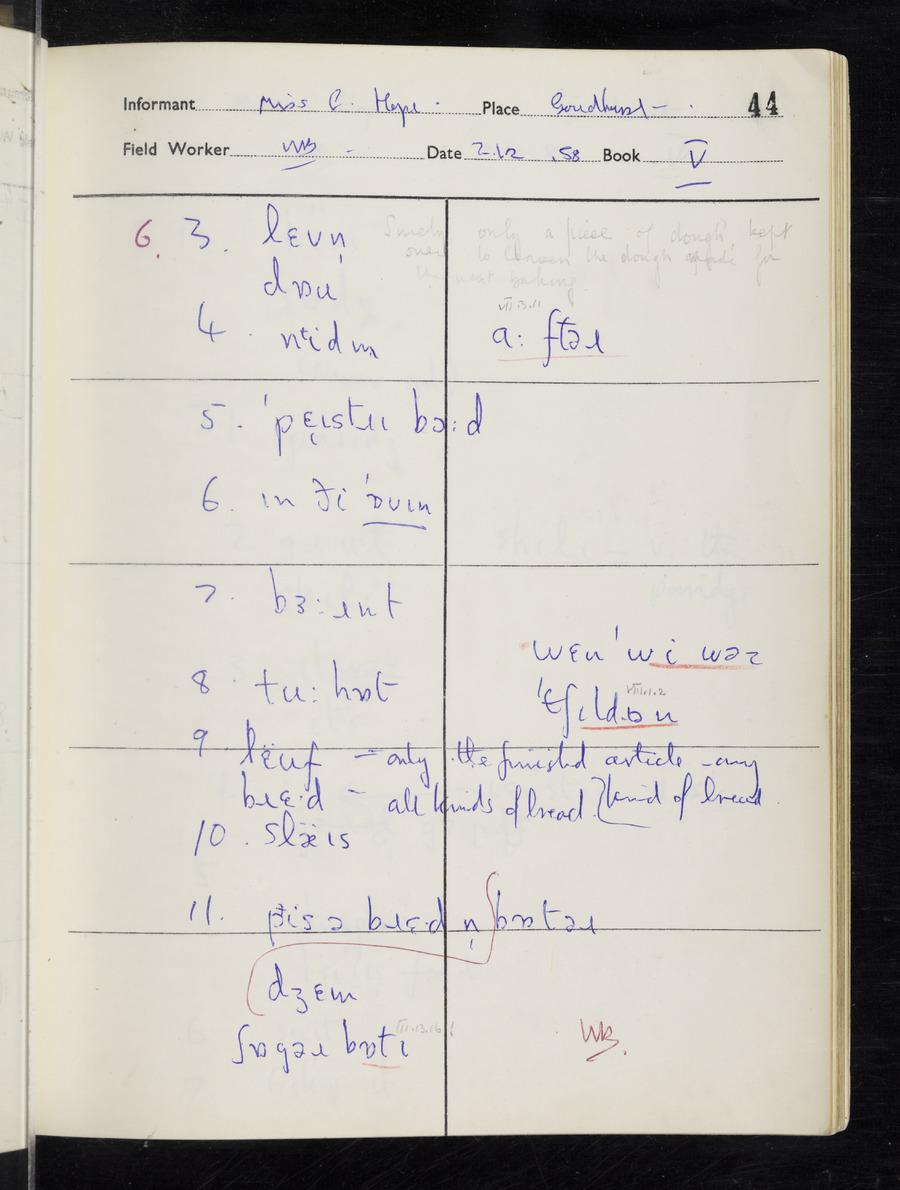 Informant Miss C. Hope. Place Goudhurst – . 44
Field Worker WB – Date 2.12 .58 Book V
6. 3. lɛvn Surely only a piece of dough kept
over to leaven the dough made for
the next baking
dɒu
4. niːdɪn VII.13.11
a: ftəɹ
5. ˈpɛɪstɹɪ bɔ:d
6. ɪn ði ˈɒvɪn
7. bɜ:ɹnt
wɛn ˈwi wəz
8 tu: hɒt ˈtʃɪldɹən VIII.1.2
9. lɛuf – only the finished article – any
bɹɛ·d – all kinds of bread. kind of bread.
10. slæɪs
11. pis ə bɹɛ·d n̩ bɒtəɹ
dʒɛm
ʃɒgəɹ bɒtɪ VII.13.16
WB.